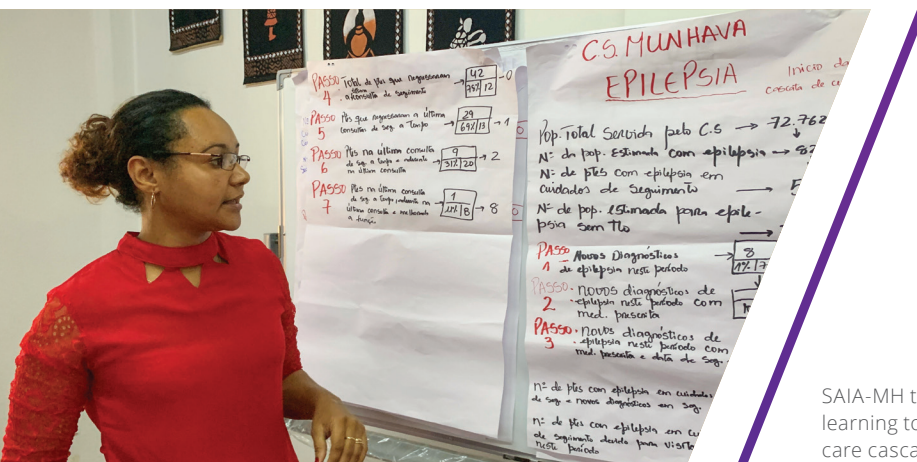 PASSO 4 Total de ptes que regressaram
a consulta de seguimento
→ 42 -0
75% 12
PASSO 5 Ptes que regressaram a última
consulta de seg. a tempo
→ 29 → 1
69% 13
PASSO 6 Ptes na última consulta
de seg. a tempo e aderente
na última consulta
→ 9 → 2
31% 20
PASSO 7 Ptes na última consulta
de seg. a tempo, aderente na
última consulta e melhorado
a função
→ 1 → 8
11% 8
C.S. MUNHAVA
EPILEPSIA
Inicio da
cascata de
Pop. Total Servida pelo C.S → 72.762
Nº da pop. Estimada com epilepsia →
Nº de ptes com epilepsia em
cuidados de seguimento →
Nº de pop. estimada para epile-
psia sem tto →
PASSO 1 Novos Diagnósticos → 8
de epilepsia neste período 1%
PASSO 2 novos diagnósticos de
epilepsia neste período com
med. prescrita
PASSO 3 novos diagnósticos de
epilepsia neste período com
med. prescrita e data de seg.
nº de ptes com epilepsia em cuidados
de seg e novos diagnósticos em seg.
nº de ptes com epilepsia em
de seguimento devido para visita
neste período
SAIA-MH
learning to
care casca